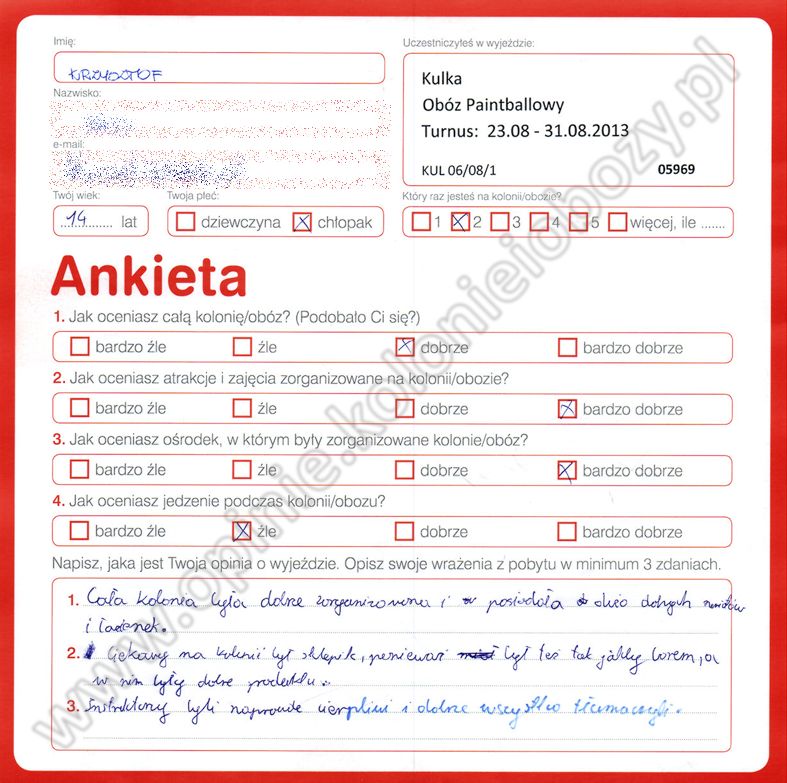 Imię:
KRZYSZTOF
Nazwisko:
e-mail:
Twój wiek:
14 lat
Twoja płeć:
dziewczyna chłopak
Uczestniczyłeś w wyjeździe:
Kulka
Obóz Paintballowy
Turnus: 23.08 - 31.08.2013
KUL 06/08/1 05969
Który raz jesteś na kolonii/obozie?
1 2 3 4 5 więcej, ile .......
Ankieta
1. Jak oceniasz całą kolonię/obóz? (Podobało Ci się?)
bardzo źle źle dobrze bardzo dobrze
2. Jak oceniasz atrakcje i zajęcia zorganizowane na kolonii/obozie?
bardzo źle źle dobrze bardzo dobrze
3. Jak oceniasz ośrodek, w którym były zorganizowane kolonie/obóz?
bardzo źle źle dobrze bardzo dobrze
4. Jak oceniasz jedzenie podczas kolonii/obozu?
bardzo źle źle dobrze bardzo dobrze
Napisz, jaka jest Twoja opinia o wyjeździe. Opisz swoje wrażenia z pobytu w minimum 3 zdaniach.
1. Cała kolonia była dobrze zorganizowana i posiadała dużo dobrych
i łazienek.
2. Ciekawy na kolonii był sklepik, ponieważ był też tak jakby barem, a
w nim były dobre produkty.
3. Instruktorzy byli naprawdę cierpliwi i dobrze wszystko tłumaczyli.
www.opinie.kolonieiobozy.pl